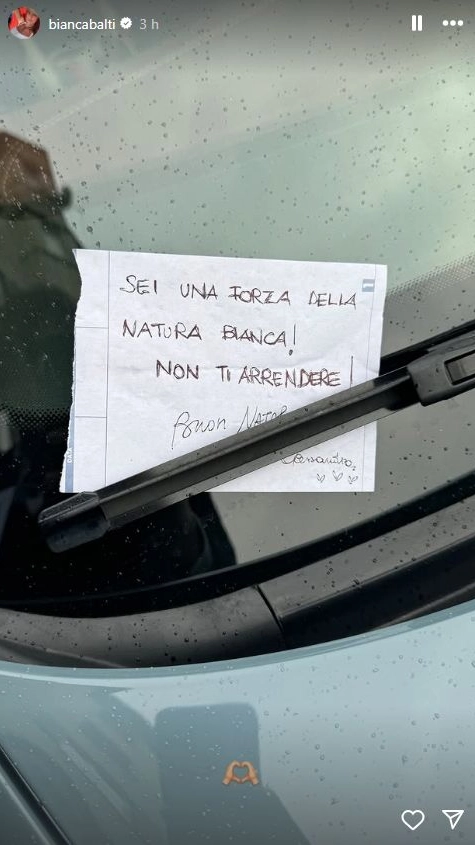 biancabalti 3 h
SEI UNA FORZA DELLA
NATURA BIANCA!
NON TI ARRENDERE!
Buon